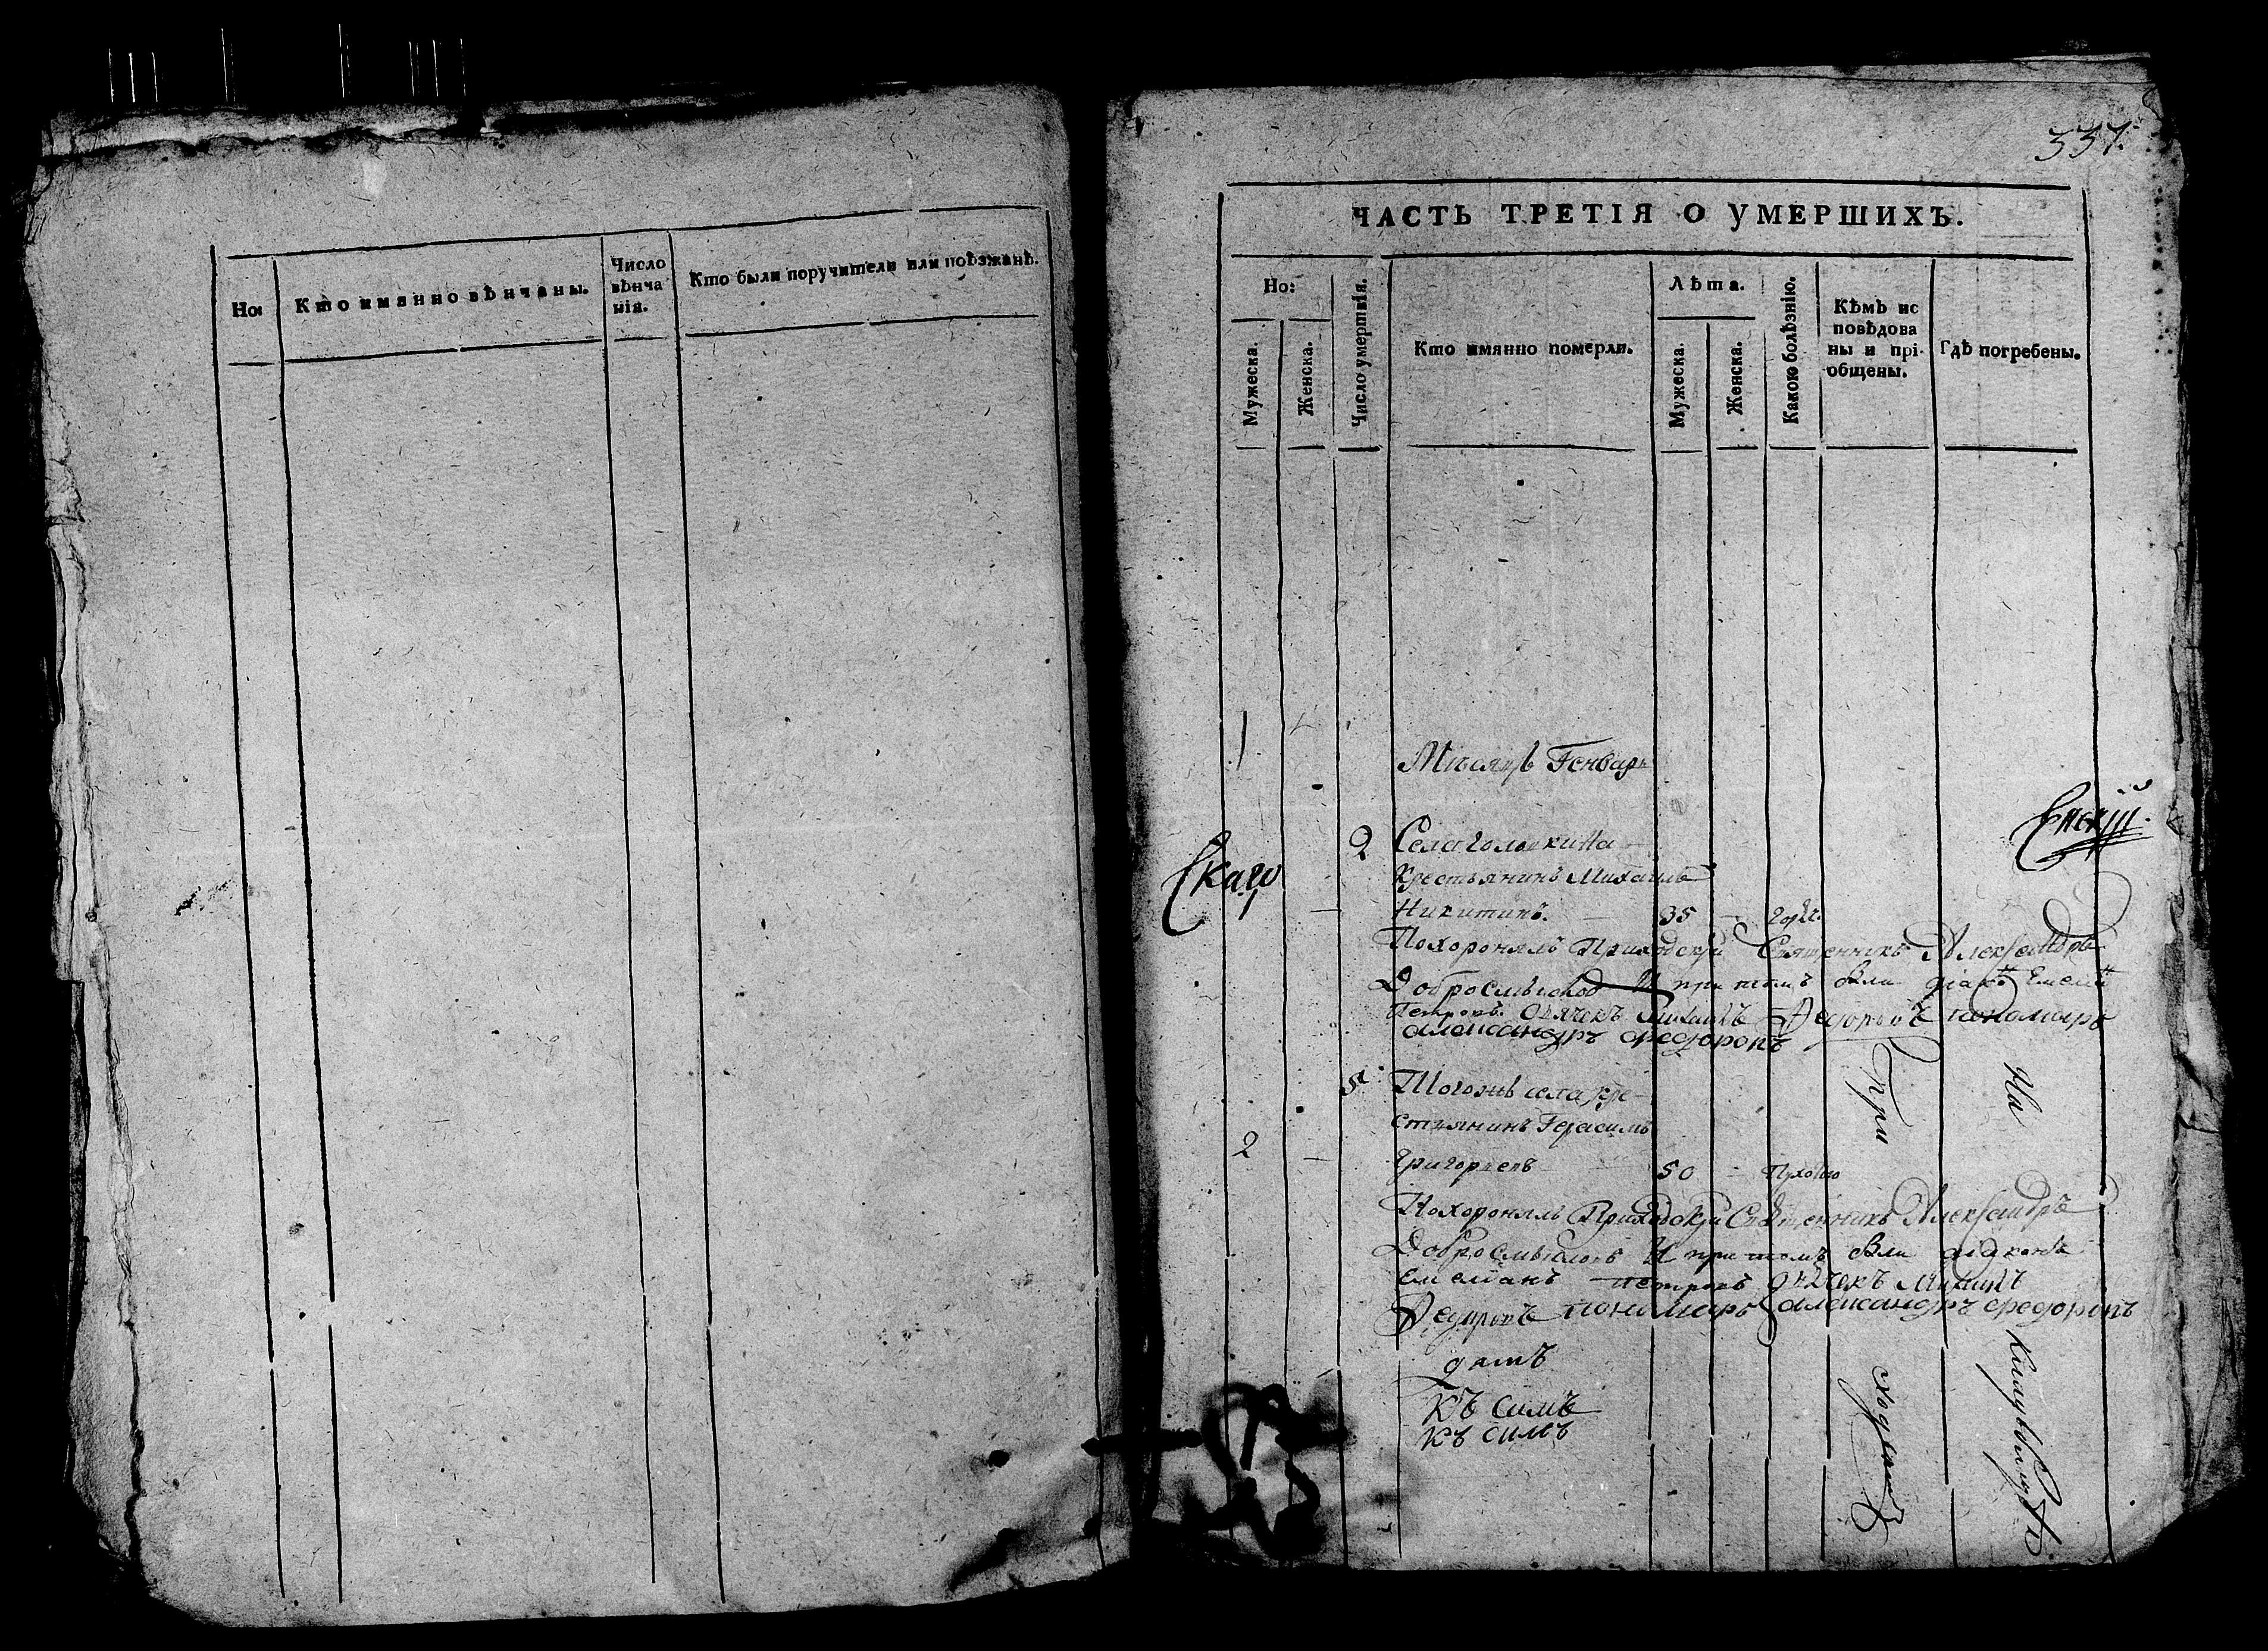 Но:
Кто имянно вѣнчаны.
Число
вѣнча
нія.
Кто были поручители или поѣзжанѣ.
337.
ЧАСТЬ ТРЕТІЯ О УМЕРШИХЪ.
Но:
Мужеска.
Женска.
Число умертвія.
Кто имянно померли.
Лѣта.
Мужеска.
Женска.
Какою болѣзнію.
Кѣмъ ис
повѣдова
ны и прі-
общены.
Гдѣ погребены.
1
Мѣсяцъ Генварь
2 Села Головкина
Скаго
Крестьянинъ Михаилъ
1 — Никитинъ. — 35 —
Похоронялъ Приходскій Священникъ Александръ
Добросмысловъ И при томъ были діаконъ Емелиянъ
Петровъ. дьячекъ Михаилъ Федоровъ пономарь
александръ Федоровъ
5 Тогожъ села кре-
стьянинъ Герасимъ
2 — Григорьевъ — 50 —
Похоронялъ Приходскій Священникъ Александръ
Добросмысловъ И при томъ были діаконъ
Емелианъ петровъ дьячекъ Михаилъ
Федоровъ пономарь александръ Федоровъ
При
ходскимъ
На
кладбищѣ.
датъ
Къ симъ
Къ симъ